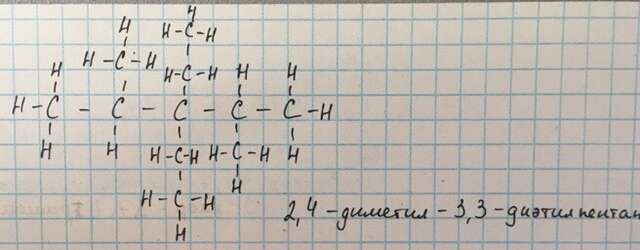 H H
H-C-H
H-C-H H-C-H H H
H-C - C - C - C - C-H
H H H-C-H H-C-H H
H-C-H H
H
2,4-диметил-3,3-диэтилпентан